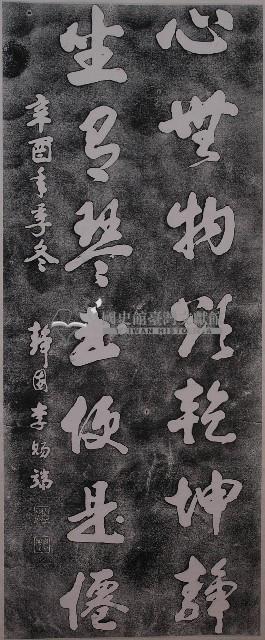 心無物欲乾坤靜
坐有琴書便是僊
辛酉年季冬 靜園李賜瑞
國史館臺灣文獻館
TAIWAN HISTORICA